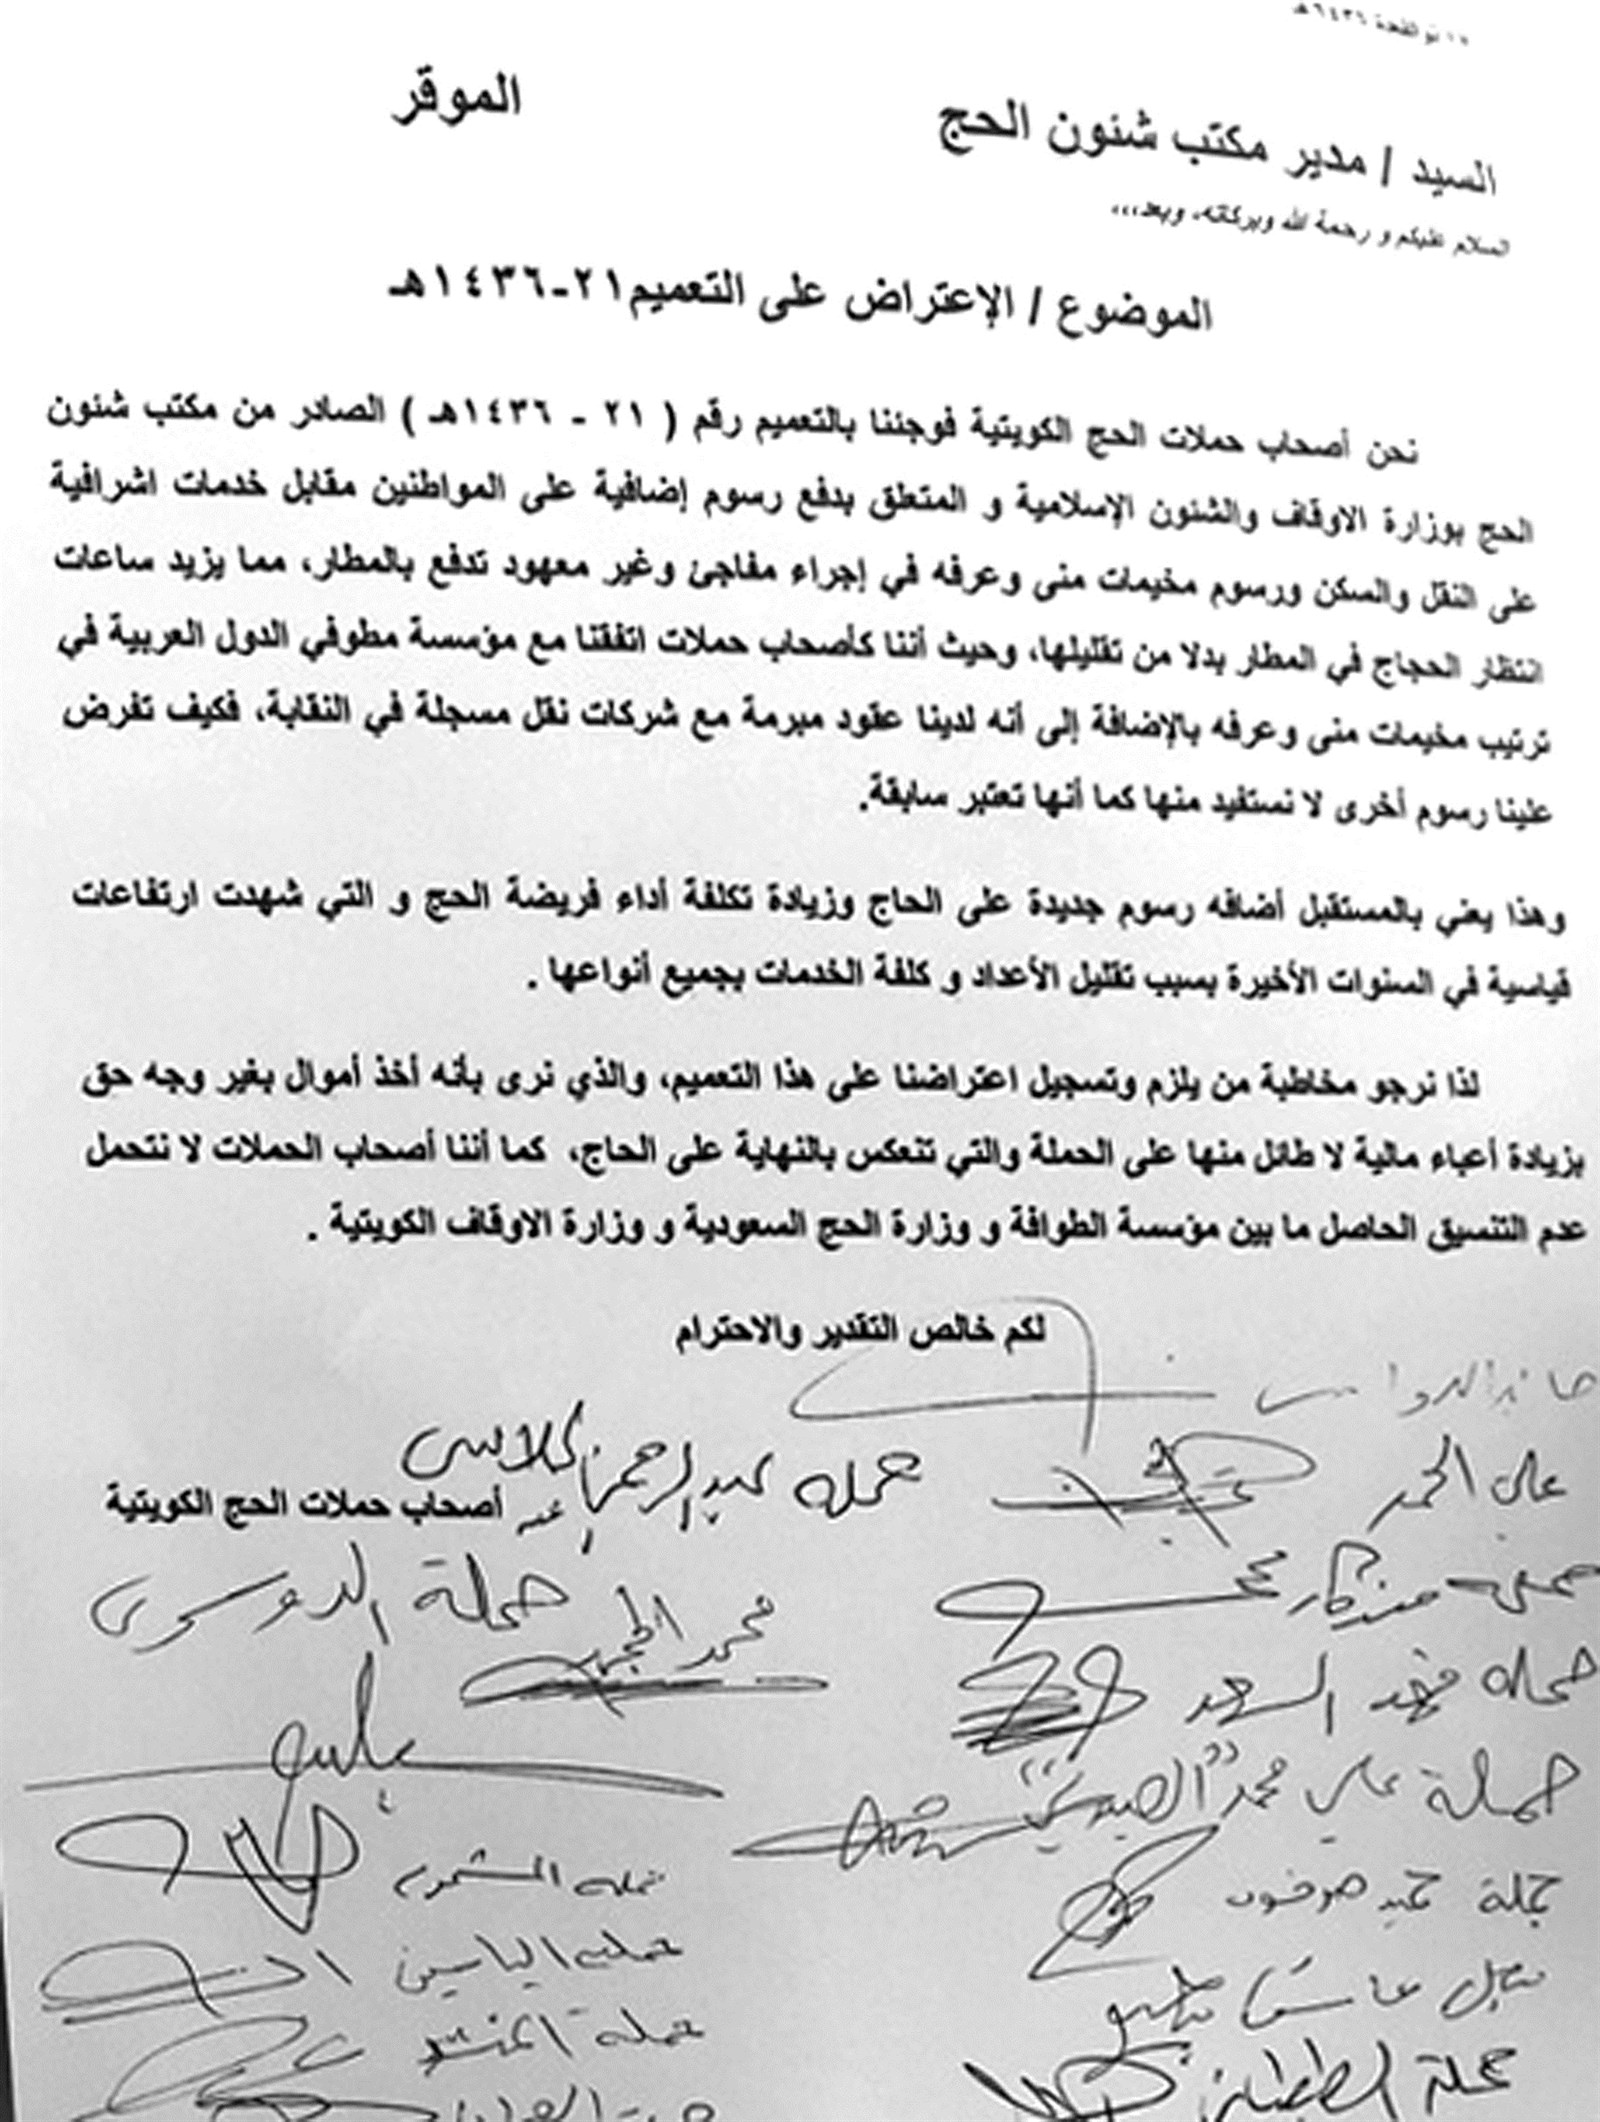 السيد / مدير مكتب شئون الحج الموقر
السلام عليكم و رحمة الله وبركاته، وبعد،،،
الموضوع / الإعتراض على التعميم ٢١-١٤٣٦هـ
نحن أصحاب حملات الحج الكويتية فوجئنا بالتعميم رقم ( ٢١ - ١٤٣٦هـ ) الصادر من مكتب شئون
الحج بوزارة الاوقاف والشئون الإسلامية و المتعلق بدفع رسوم إضافية على المواطنين مقابل خدمات اشرافية
على النقل والسكن ورسوم مخيمات منى وعرفه في إجراء مفاجئ وغير معهود تدفع بالمطار، مما يزيد ساعات
انتظار الحجاج في المطار بدلا من تقليلها، وحيث أننا كأصحاب حملات اتفقنا مع مؤسسة مطوفي الدول العربية في
ترتيب مخيمات منى وعرفه بالإضافة إلى أنه لدينا عقود مبرمة مع شركات نقل مسجلة في النقابة، فكيف تفرض
علينا رسوم أخرى لا نستفيد منها كما أنها تعتبر سابقة.
وهذا يعني بالمستقبل أضافه رسوم جديدة على الحاج وزيادة تكلفة أداء فريضة الحج و التي شهدت ارتفاعات
قياسية في السنوات الأخيرة بسبب تقليل الأعداد و كلفة الخدمات بجميع أنواعها .
لذا نرجو مخاطبة من يلزم وتسجيل اعتراضنا على هذا التعميم، والذي نرى بأنه أخذ أموال بغير وجه حق
بزيادة أعباء مالية لا طائل منها على الحملة والتي تنعكس بالنهاية على الحاج، كما أننا أصحاب الحملات لا نتحمل
عدم التنسيق الحاصل ما بين مؤسسة الطوافة و وزارة الحج السعودية و وزارة الاوقاف الكويتية .
لكم خالص التقدير والاحترام
علي الحمد
حمله عبدالرحمن
أصحاب حملات الحج الكويتية
حملة الدوسري
محمد
حملة فهد السعيد
حملة علي محمد
حملة
حملة الياسين
حملة
حملة